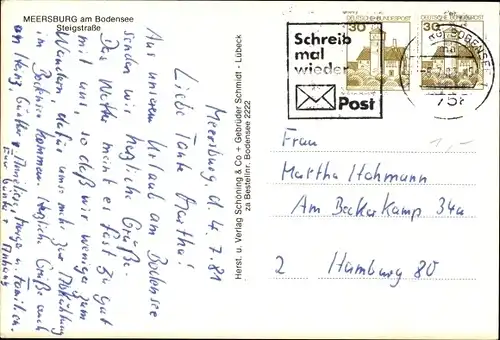 MEERSBURG am Bodensee
Steigstraße
Meersburg, d. 4.7.81
Liebe Tante Martha!
Aus unserem Urlaub am Bodensee
senden wir herzliche Grüße.
Das Wetter meint es fast zu gut
mit uns, so daß wir weniger zum
Wandern, dafür umso mehr zur Abkühlung
im Bodensee kommen. Herzliche Grüße auch
an Heinz, Günter + Familien
Herst. u. Verlag Schöning & Co + Gebrüder Schmidt - Lübeck
za Bestellnr. Bodensee 2222
30 DEUTSCHE BUNDESPOST
DEUTSCHE BUNDESPOST 30
Schreib
mal
wieder
Post
1,-
Frau
Martha Itohmann
Am Beckerkamp 34a
2 Hamburg 80